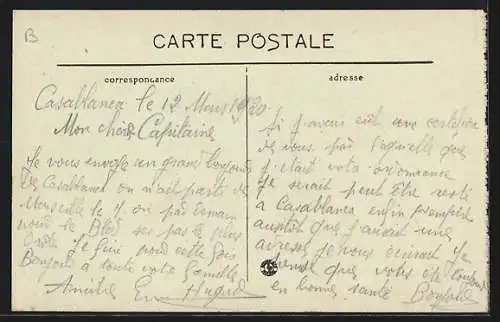 B
CARTE POSTALE
correspondance
adresse
Casablanca le 12 Mars 1920
Mon cher Capitaine
Je vous envoye un grand bonjour
de Casablanca on n'ait parti de
Marseille le
nour le Bled ses pas le plus
nord cette fois
Bonjour a toute vota famille
Amitié
Si j'avais eut une certefica
de vous par laquelle que
j'était vota ordonnance
Je serait peut être resté
a Casablanca enfin
ausitôt que j'aurait une
adresse je vous ecrirait Je
pense que vous ete toujour
en bonne santé Bonjour